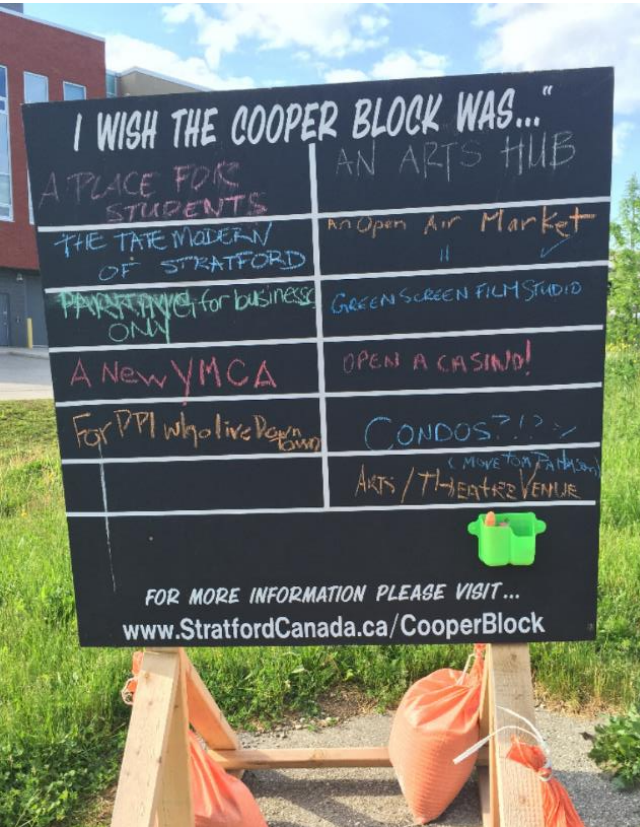 I WISH THE COOPER BLOCK WAS..."
A PLACE FOR
STUDENTS
THE TATE MODERN
OF STRATFORD
for business
ONLY
A New YMCA
For PPl who live Down
town
AN ARTS HUB
An Open Air Market
"
GREEN SCREEN FILM STUDIO
OPEN A CASINO!
CONDOS?!?
(MOVE TOM PATTERSON)
ARTS/THEATRE VENUE
FOR MORE INFORMATION PLEASE VISIT...
www.StratfordCanada.ca/CooperBlock